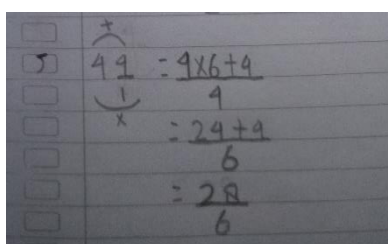 +
5 4 4 = 4x6+4
1 4
x = 24+4
6
= 28
6